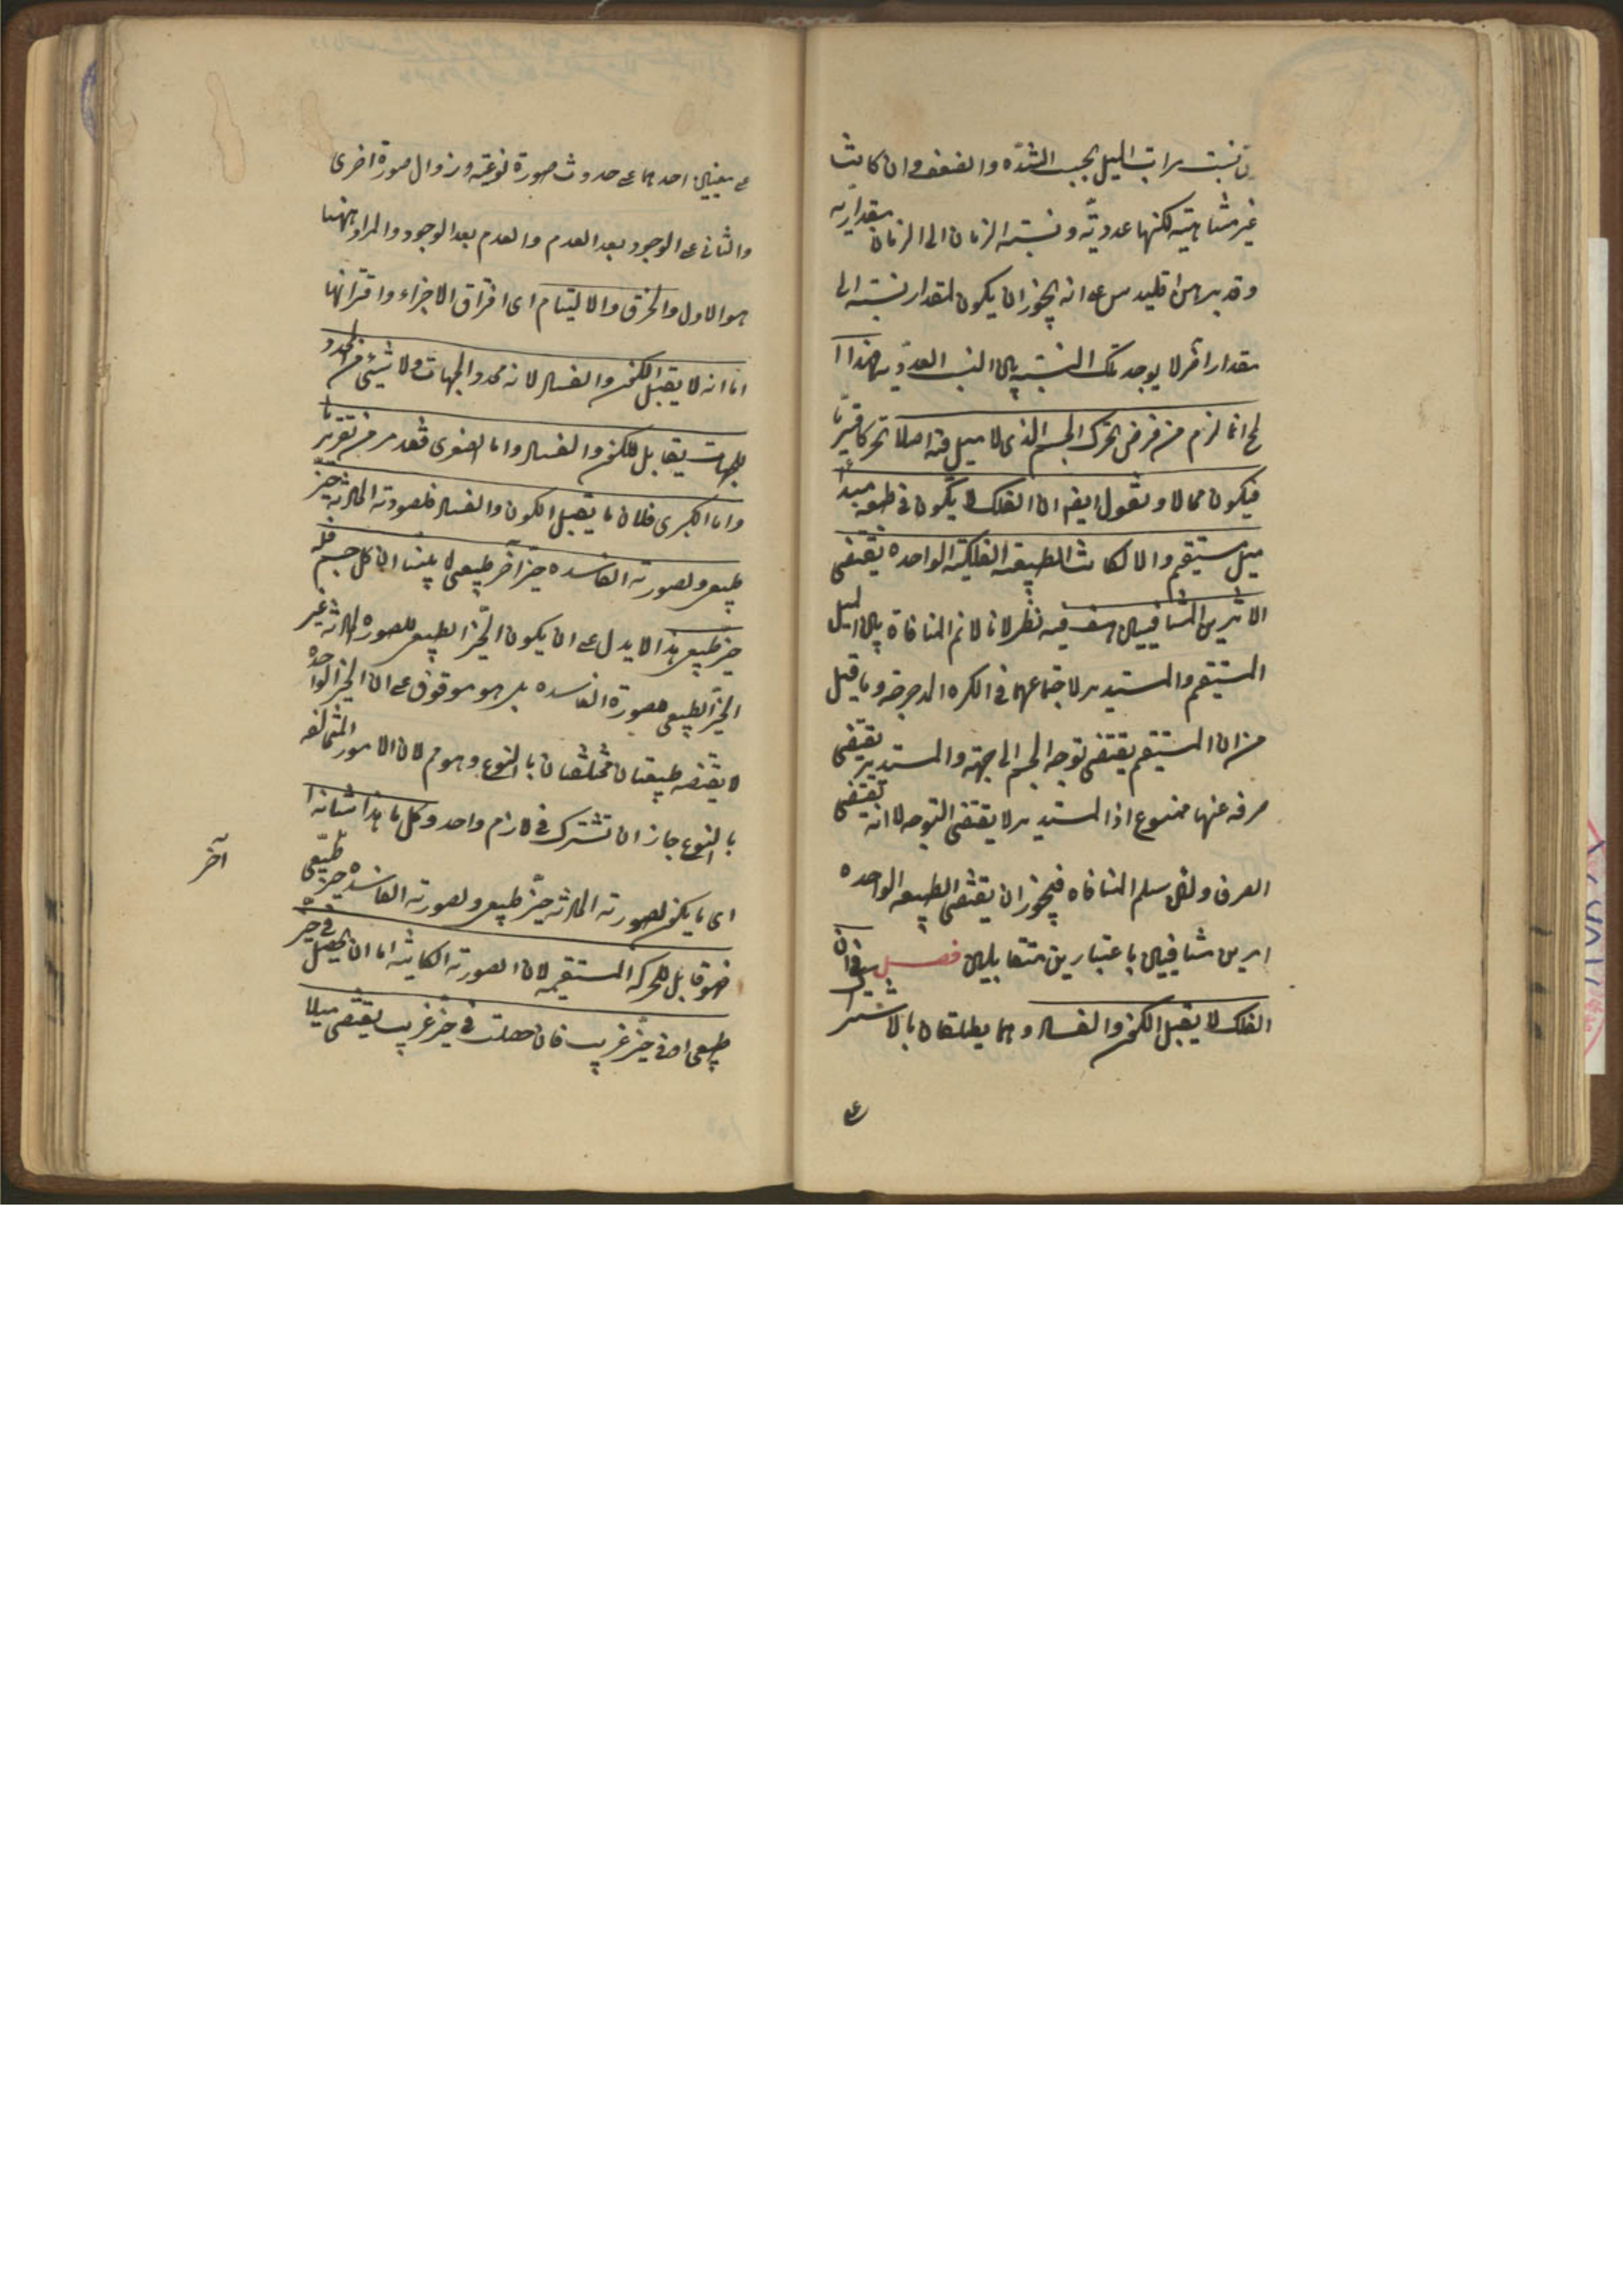 نسبت مراتب الميل بحسب الشدّه والضعف وان كانت
غير متناهية لكنها عدديّة ونسبته الزمان الى الزمان مقدارية
وقد برهن اقليدس على انه يجوز ان يكون لمقدار نسبته الى
مقدار آخر لا يوجد تلك النسبة بين النسب العددية فهذا ا
لمح انما لزم من فرض تحرك الجسم الذى لا ميل فيه اصلا تحركا قسريّا
فيكون محالا ونقول ايضا ان الفلك لا يكون فى طبعه مبدأ
ميل مستقيم والا لكانت الطبيعة الفلكية الواحده تقتضى
الاثرين المتنافيين هف فيه نظر لانا لانم المنافاة بين الميل
المستقيم والمستدير لاجتماعهما فى الكره المدحرجة وما قيل
من ان المستقيم يقتضى توجه الجسم الى جهته والمستدير يقتضى
صرفه عنها ممنوع اذ المستدير لا يقتضى التوجه لا انه يقتضى
الصرف ولئن سلم المنافاه فيجوز ان يقتضى الطبيعه الواحده
امرين متنافيين باعتبارين متقابلين فصل فى ان
الفلك لا يقبل الكون والفساد وهما يطلقان بالاشترا
ع
على معنيين احدهما على حدوث صورة نوعيّه وزوال صورة اخرى
والثانى على الوجود بعد العدم والعدم بعد الوجود والمراد ههنا
هو الاول والخرق والالتيام اى افتراق الاجزاء واقترانها
اما انه لا يقبل الكون والفساد لانه محدد الجهات ولا شئ من المحدد
للجهات يقابل للكون والفساد واما الصغرى فقد مر من تقريرنا
واما الكبرى فلان ما يقبل الكون والفساد فلصورته الحادثة حيّز
طبيعى ولصورته الفاسده حيز آخر طبيعى لما بينا ان كل جسم فله
حيز طبيعى هذا لا يدل على ان يكون الحيّز الطبيعى للصوره الحادثة غير
الحيّز الطبيعى لصورة الفاسده بل هو موقوف على ان الحيز الواحد
لا يقتضيه طبيعتان مختلفتان بالنوع وهو مم لان الامور المتخالفه
بالنوع جاز ان تشترك فى لازم واحد وكل ما هذا شانه ا
اى ما يكون لصورته الحادثه حيّز طبيعى ولصورته الفاسده حيز طبيعى
آخر
فهو قابل للحركه المستقيمه لان الصورته الكاينة اما ان يحصل فى حيز
طبيعى او فى حيّز غريب فان حصلت فى حيّز غريب يقتضى ميلا